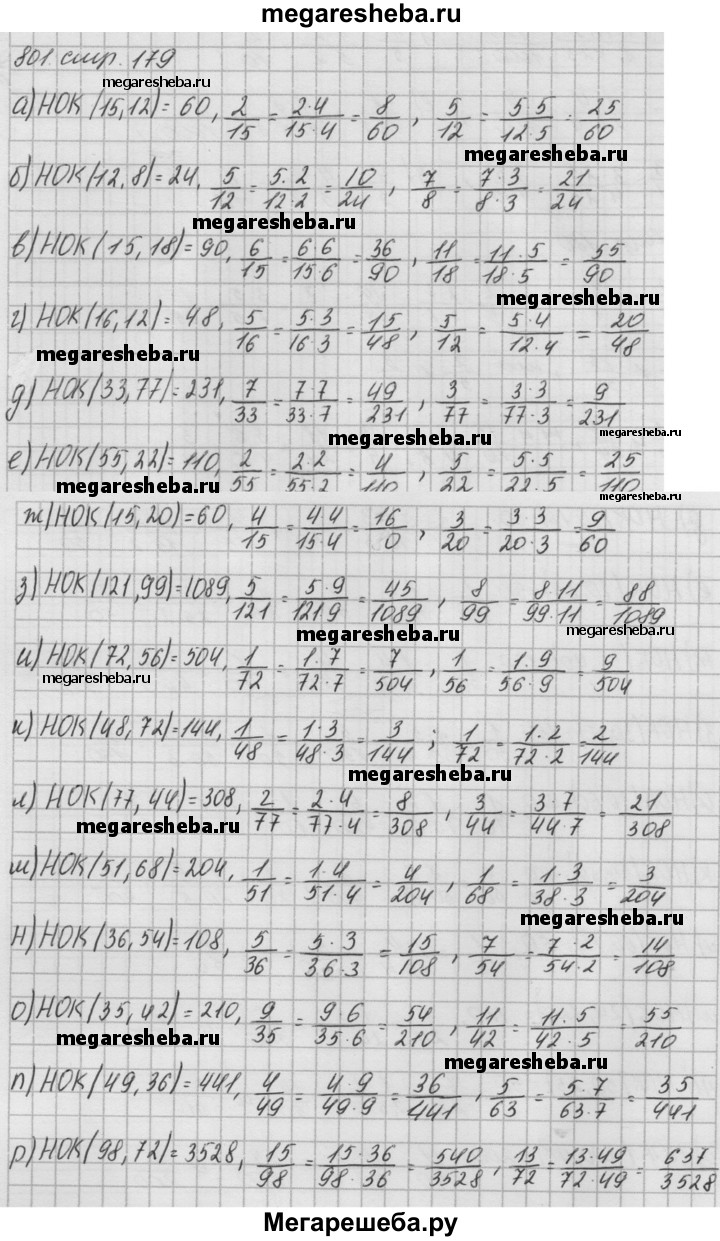 megaresheba.ru
801. стр. 179
megaresheba.ru
а) НОК (15,12) = 60, 2/15 = 2·4/15·4 = 8/60, 5/12 = 5·5/12·5 = 25/60
megaresheba.ru
б) НОК (12,8) = 24, 5/12 = 5·2/12·2 = 10/24, 7/8 = 7·3/8·3 = 21/24
megaresheba.ru
в) НОК (15,18) = 90, 6/15 = 6·6/15·6 = 36/90, 11/18 = 11·5/18·5 = 55/90
megaresheba.ru
г) НОК (16,12) = 48, 5/16 = 5·3/16·3 = 15/48, 5/12 = 5·4/12·4 = 20/48
megaresheba.ru
д) НОК (33,77) = 231, 7/33 = 7·7/33·7 = 49/231, 3/77 = 3·3/77·3 = 9/231
megaresheba.ru
megaresheba.ru
е) НОК (55,22) = 110, 2/55 = 2·2/55·2 = 4/110, 5/22 = 5·5/22·5 = 25/110
megaresheba.ru
megaresheba.ru
ж) НОК (15,20) = 60, 4/15 = 4·4/15·4 = 16/0, 3/20 = 3·3/20·3 = 9/60
з) НОК (121,99) = 1089, 5/121 = 5·9/121·9 = 45/1089, 8/99 = 8·11/99·11 = 88/1089
megaresheba.ru
megaresheba.ru
и) НОК (72,56) = 504, 1/72 = 1·7/72·7 = 7/504, 1/56 = 1·9/56·9 = 9/504
megaresheba.ru
к) НОК (48,72) = 144, 1/48 = 1·3/48·3 = 3/144; 1/72 = 1·2/72·2 = 2/144
megaresheba.ru
л) НОК (77,44) = 308, 2/77 = 2·4/77·4 = 8/308, 3/44 = 3·7/44·7 = 21/308
megaresheba.ru
м) НОК (51,68) = 204, 1/51 = 1·4/51·4 = 4/204, 1/68 = 1·3/38·3 = 3/204
megaresheba.ru
н) НОК (36,54) = 108, 5/36 = 5·3/36·3 = 15/108, 7/54 = 7·2/54·2 = 14/108
о) НОК (35,42) = 210, 9/35 = 9·6/35·6 = 54/210, 11/42 = 11·5/42·5 = 55/210
megaresheba.ru
megaresheba.ru
п) НОК (49,36) = 441, 4/49 = 4·9/49·9 = 36/441, 5/63 = 5·7/63·7 = 35/441
р) НОК (98,72) = 3528, 15/98 = 15·36/98·36 = 540/3528, 13/72 = 13·49/72·49 = 637/3528
Мегарешеба.ру